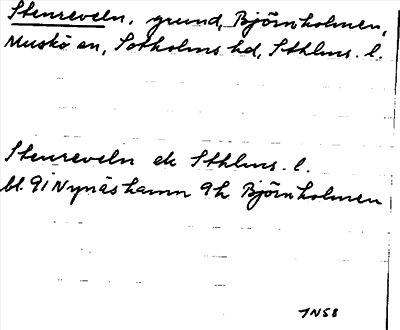 Stenreveln, grund, Björnholmen,
Muskö sn, Sotholms hd, Sthlms. l.
Stenreveln ek Sthlms. l.
bl. 9I Nynäshamn 9h Björnholmen
1958